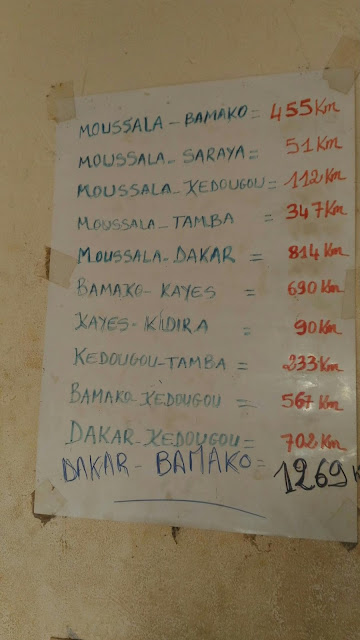 MOUSSALA - BAMAKO = 455 Km
MOUSSALA - SARAYA = 51 Km
MOUSSALA - KEDOUGOU = 112 Km
MOUSSALA - TAMBA = 347 Km
MOUSSALA - DAKAR = 814 Km
BAMAKO - KAYES = 690 Km
KAYES - KIDIRA = 90 Km
KEDOUGOU - TAMBA = 233 Km
BAMAKO - KEDOUGOU = 567 Km
DAKAR - KEDOUGOU = 702 Km
DAKAR - BAMAKO = 1269 K